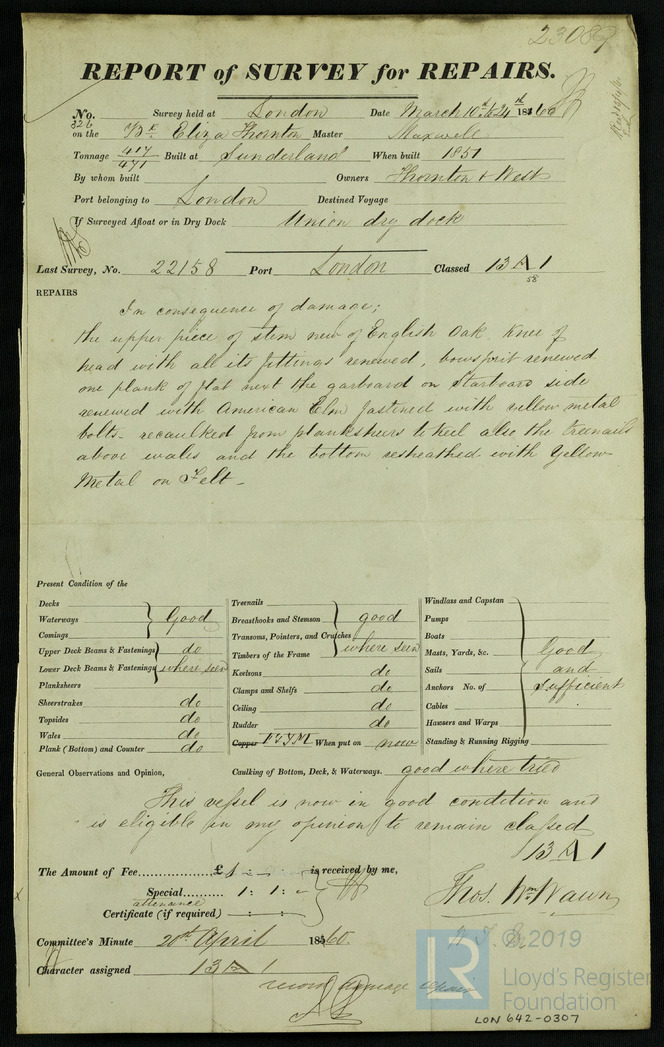 23089
REPORT of SURVEY for REPAIRS.
No. 326 Survey held at London Date March 10th to 24th 1860
on the Bk Eliza Thornton Master Maxwell
Tonnage 417/471 Built at Sunderland When built 1851
By whom built Owners Thornton & West
Port belonging to London Destined Voyage
If Surveyed Afloat or in Dry Dock Union dry dock
Last Survey, No. 22158 Port London Classed 13 A 1
58
REPAIRS
In consequence of damage;
the upper piece of stem new of English Oak Knee of
head with all its fittings renewed, bowsprit renewed
one plank of flat next the garboard on Starboard side
renewed with American Elm fastened with yellow metal
bolts - recaulked from planksheers to keel also the treenails
above wales and the bottom resheathed with Yellow
Metal on Felt -
Present Condition of the
Decks
Waterways Good
Comings
Upper Deck Beams & Fastenings do
Lower Deck Beams & Fastenings where seen
Planksheers
Sheerstrakes do
Topsides do
Wales do
Plank (Bottom) and Counter do
Treenails
Breasthooks and Stemson good
Transoms, Pointers, and Crutches
Timbers of the Frame where seen
Keelsons do
Clamps and Shelfs do
Ceiling do
Rudder do
Copper F&YM When put on now
Windlass and Capstan
Pumps
Boats
Masts, Yards, &c. Good
Sails and
Anchors No. of Sufficient
Cables
Hawsers and Warps
Standing & Running Rigging
General Observations and Opinion, Caulking of Bottom, Deck, & Waterways. good where tried
This vessel is now in good condition and
is eligible in my opinion to remain classed
13 A 1
The Amount of Fee......£ 1 : - : - is received by me,
Special......... 1 : 1 : -
attenance
Certificate (if required) - : - : -
Thos. Wm Wawn
Committee's Minute 20th April 1860
Character assigned 13 A 1
record damage repairs
LR
© 2019
Lloyd's Register
Foundation
LON 642-0307